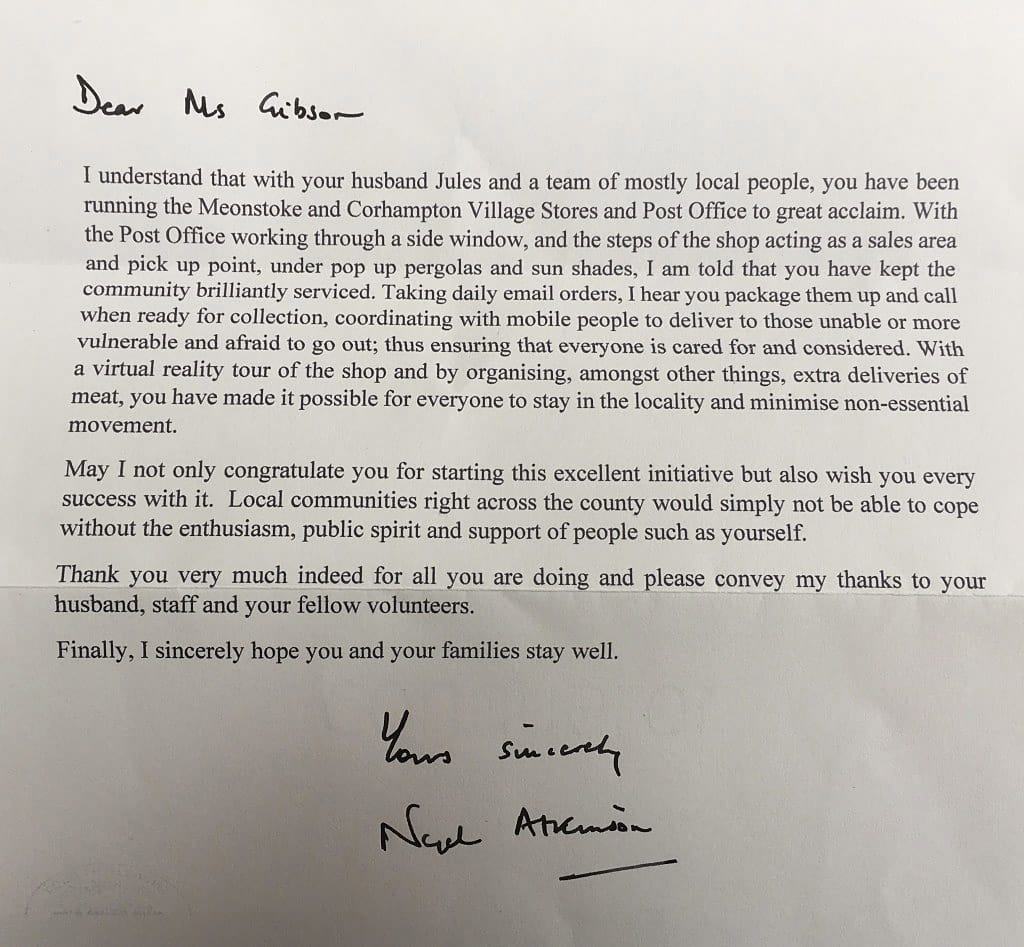 Dear Ms Gibson
I understand that with your husband Jules and a team of mostly local people, you have been
running the Meonstoke and Corhampton Village Stores and Post Office to great acclaim. With
the Post Office working through a side window, and the steps of the shop acting as a sales area
and pick up point, under pop up pergolas and sun shades, I am told that you have kept the
community brilliantly serviced. Taking daily email orders, I hear you package them up and call
when ready for collection, coordinating with mobile people to deliver to those unable or more
vulnerable and afraid to go out; thus ensuring that everyone is cared for and considered. With
a virtual reality tour of the shop and by organising, amongst other things, extra deliveries of
meat, you have made it possible for everyone to stay in the locality and minimise non-essential
movement.
May I not only congratulate you for starting this excellent initiative but also wish you every
success with it. Local communities right across the county would simply not be able to cope
without the enthusiasm, public spirit and support of people such as yourself.
Thank you very much indeed for all you are doing and please convey my thanks to your
husband, staff and your fellow volunteers.
Finally, I sincerely hope you and your families stay well.
Yours sincerely
Nigel Atkinson